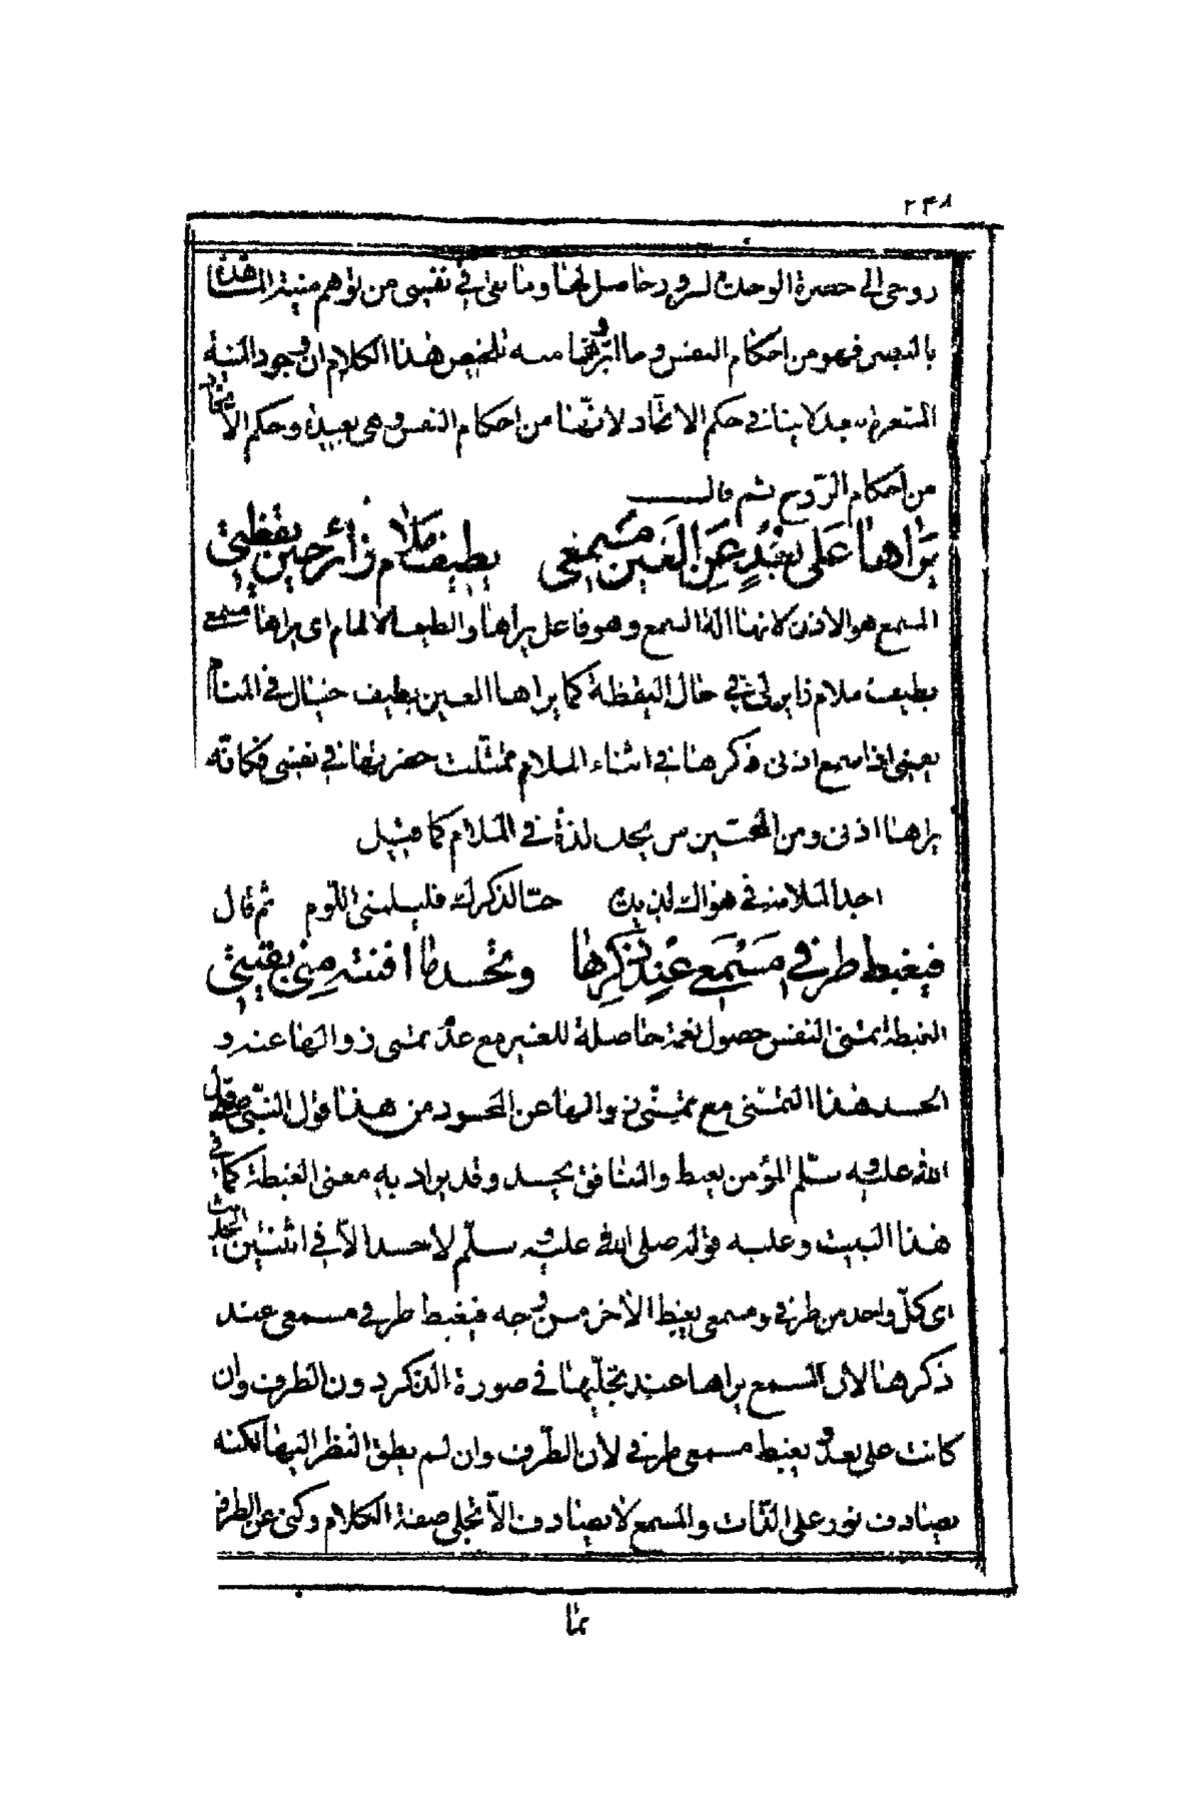 ٢٣٨
روحى الى حضرة الوحدة لسرور حاصل لها وما بقى فى نفسى من توهم منية المشاهدة
بالنفس فهو من احكام النفس وما التزمتها منه تلخيص هذا الكلام ان وجود المنية
بعيد لا ينافى حكم الاتحاد لانها من احكام النفس وهى بعيدة وحكم الاتحاد
من احكام الروح ثم قال
يراها على بعد عن العين مسمعى بطيف ملام زائر حين يقظتى
المسمع هو الاذن لانها آلة السمع وهو فاعل يراها والطيف الالمام اى يراها مسمعى
بطيف ملام زاير لى فى حال اليقظة كما يراها العين بطيف خيال فى المنام
يعنى اذا سمع اذنى ذكرها فى اثناء الملام تمثلت حضرتها فى نفسى فكانه
يراها اذنى ومن المحبين من يجد لذة فى الملام كما قيل
اجد الملامة فى هواك لذيذة حبا لذكرك فليلمنى اللوم ثم قال
فيغبط طرفى مسمعى عند ذكرها وتحسد ما افنته منى بقيتى
الغبطة تمنى النفس حصول نعمة حاصلة للغير مع عدم تمنى زوالها عنه و
الحسد هذا التمنى مع تمنى زوالها عن المحسود من هذا قول النبى صلى
الله عليه وسلم المؤمن يغبط والمنافق يحسد وقد يراد به معنى الغبطة كما فى
هذا البيت وعليه قوله صلى الله عليه وسلم لا حسد الا فى اثنين الحديث
اى كل واحد من طرفى ومسمعى يغبط الآخر من وجه فيغبط طرفى مسمعى عند
ذكرها لان المسمع يراها عند تجليها فى صورة الذكر دون الطرف وان
كانت على بعد ويغبط مسمعى طرفى لان الطرف وان لم يطق النظر اليها لكنه
يصادف نور على الذات والمسمع لا يصادف الا تجلى صفة الكلام وكنى عن الطرف
بما